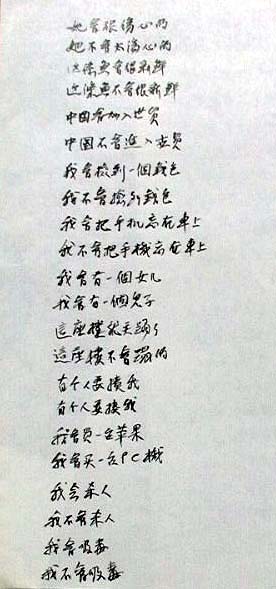 她會很傷心的
她不會太傷心的
这條魚會很新鮮
这條魚不會很新鮮
中国會加入世貿
中国不會進入世貿
我會撿到一個錢包
我不會撿到錢包
我會把手机忘在車上
我不會把手機忘在車上
我會有一個女儿
我會有一個兒子
這座樓就要塌了
這座樓不會塌的
有个人要揍我
有个人要接我
我會買一台苹果
我會买一台PC機
我会杀人
我不會杀人
我會吸毒
我不會吸毒